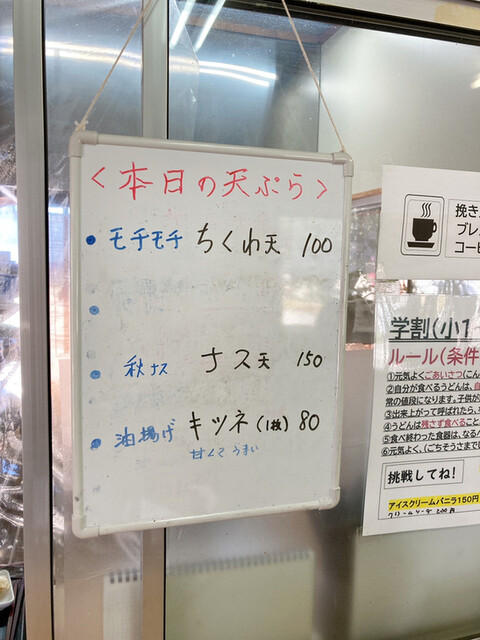 <本日の天ぷら>
モチモチ ちくわ天 100
秋ナス ナス天 150
油揚げ キツネ(1枚) 80
甘くてうまい
挽き
ブレ
コーヒ
学割(小1
ルール(条件
①元気よくごあいさつ(こん
②自分が食べるうどんは、自
常の値段になります。子供が
③出来上がって呼ばれたら、
④うどんは残さず食べること
⑤食べ終わった食器は、なるべ
⑥元気よく、(ごちそうさまで
挑戦してね!
アイスクリームバニラ150円